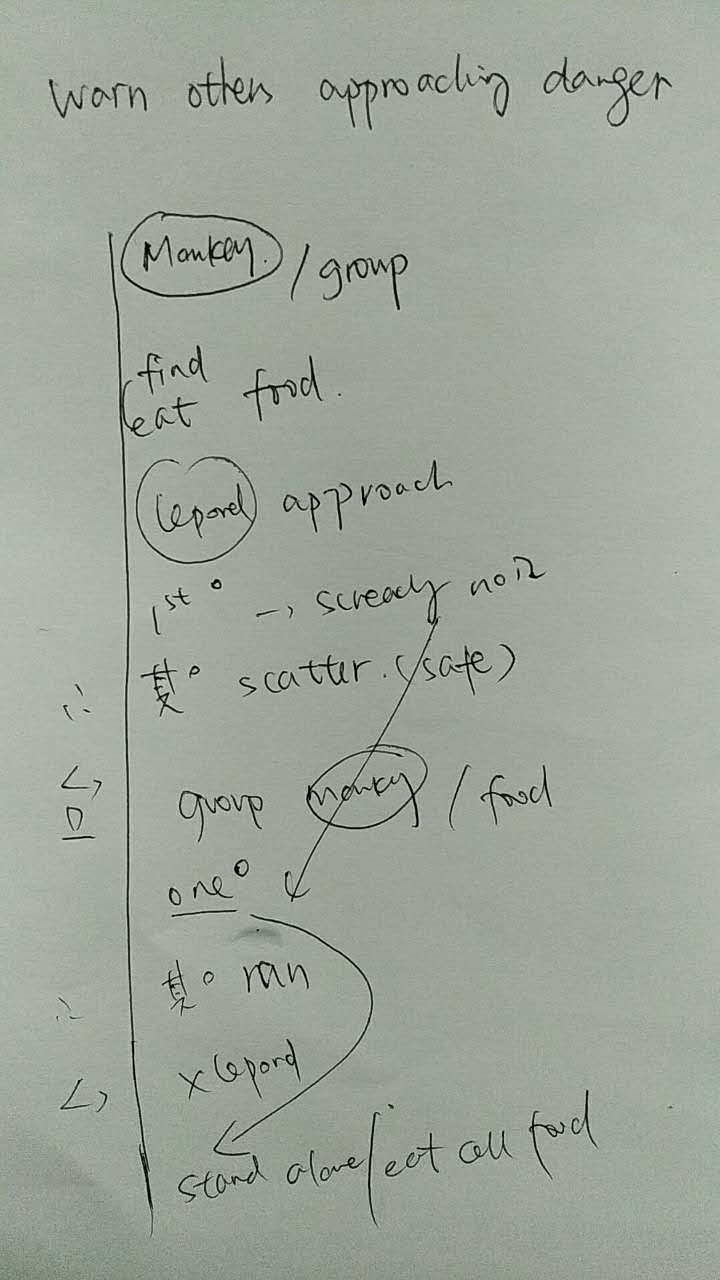 warn others approaching danger
Monkey. / group
find
eat food.
lepord approach
1st ° → scready noiz
其° scatter. (safe)
group monky / food
one°
其° ran
x lepord
stand alone / eat all food